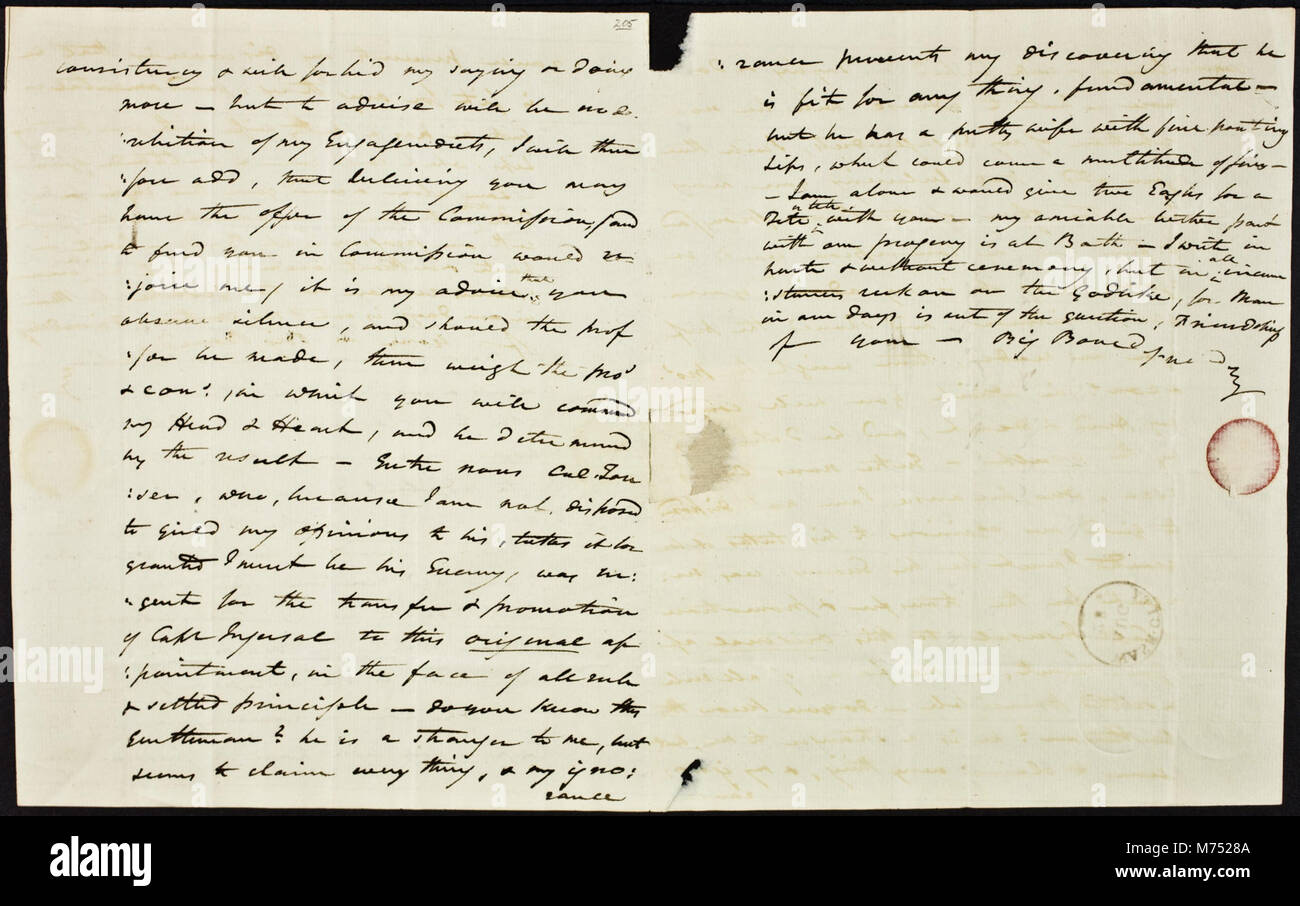 205
consistency & will forbid my saying or doing
more – but to advise will be no
:bition of my Engagements, I will there
:fore add, that believing you may
have the offer of the Commission, and
to find you in Commission would re
:joice me, it is my advice that you
observe silence, and should the prof
:fer be made, then weigh the pros
& cons. in which you will command
my Head & Heart, and be determined
by the result – Entre nous Col. Tou
:ser, who, because I am not disposed
to yield my opinions to his, takes it for
granted I must be his Enemy, was ur:
:gent for the transfer & promotion
of Capt Ingersal to this original ap
:pointment, in the face of all rule
& settled principle – do you know this
Gentleman? he is a stranger to me, but
seems to claim every thing, & my igno:
rance
:rance prevents my discovering that he
is fit for any thing, fundamental –
but he has a pretty wife with fine pouting
Lips, which could cover a multitude of sins –
– I am alone & would give two Eagles for a
Tete a tete with you – my amiable better part
with our progeny is at Bath – I write in
haste & without ceremony, but in all circum
:stances reckon on the Godlike, for Man
in our days is out of the question, Friendship
of your – Big Boned friend
a
alamy
alamy
Image ID: M7528A
www.alamy.com